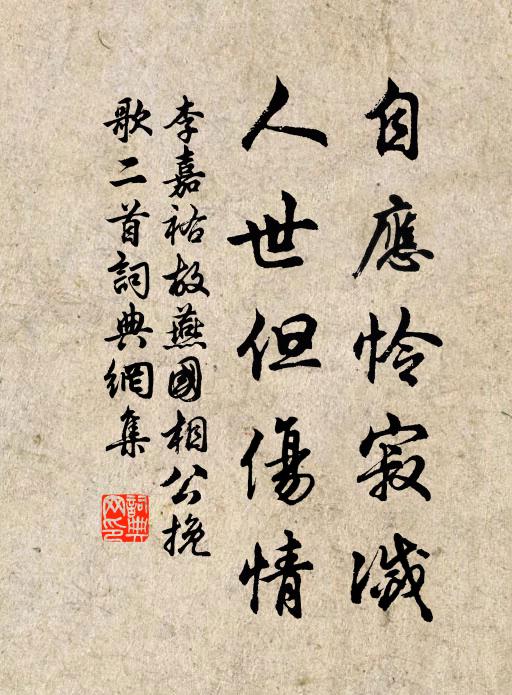 自應怜寂滅
人世但傷情
李嘉祐故燕國相公挽
歌二首詞典網集
詞典
网印